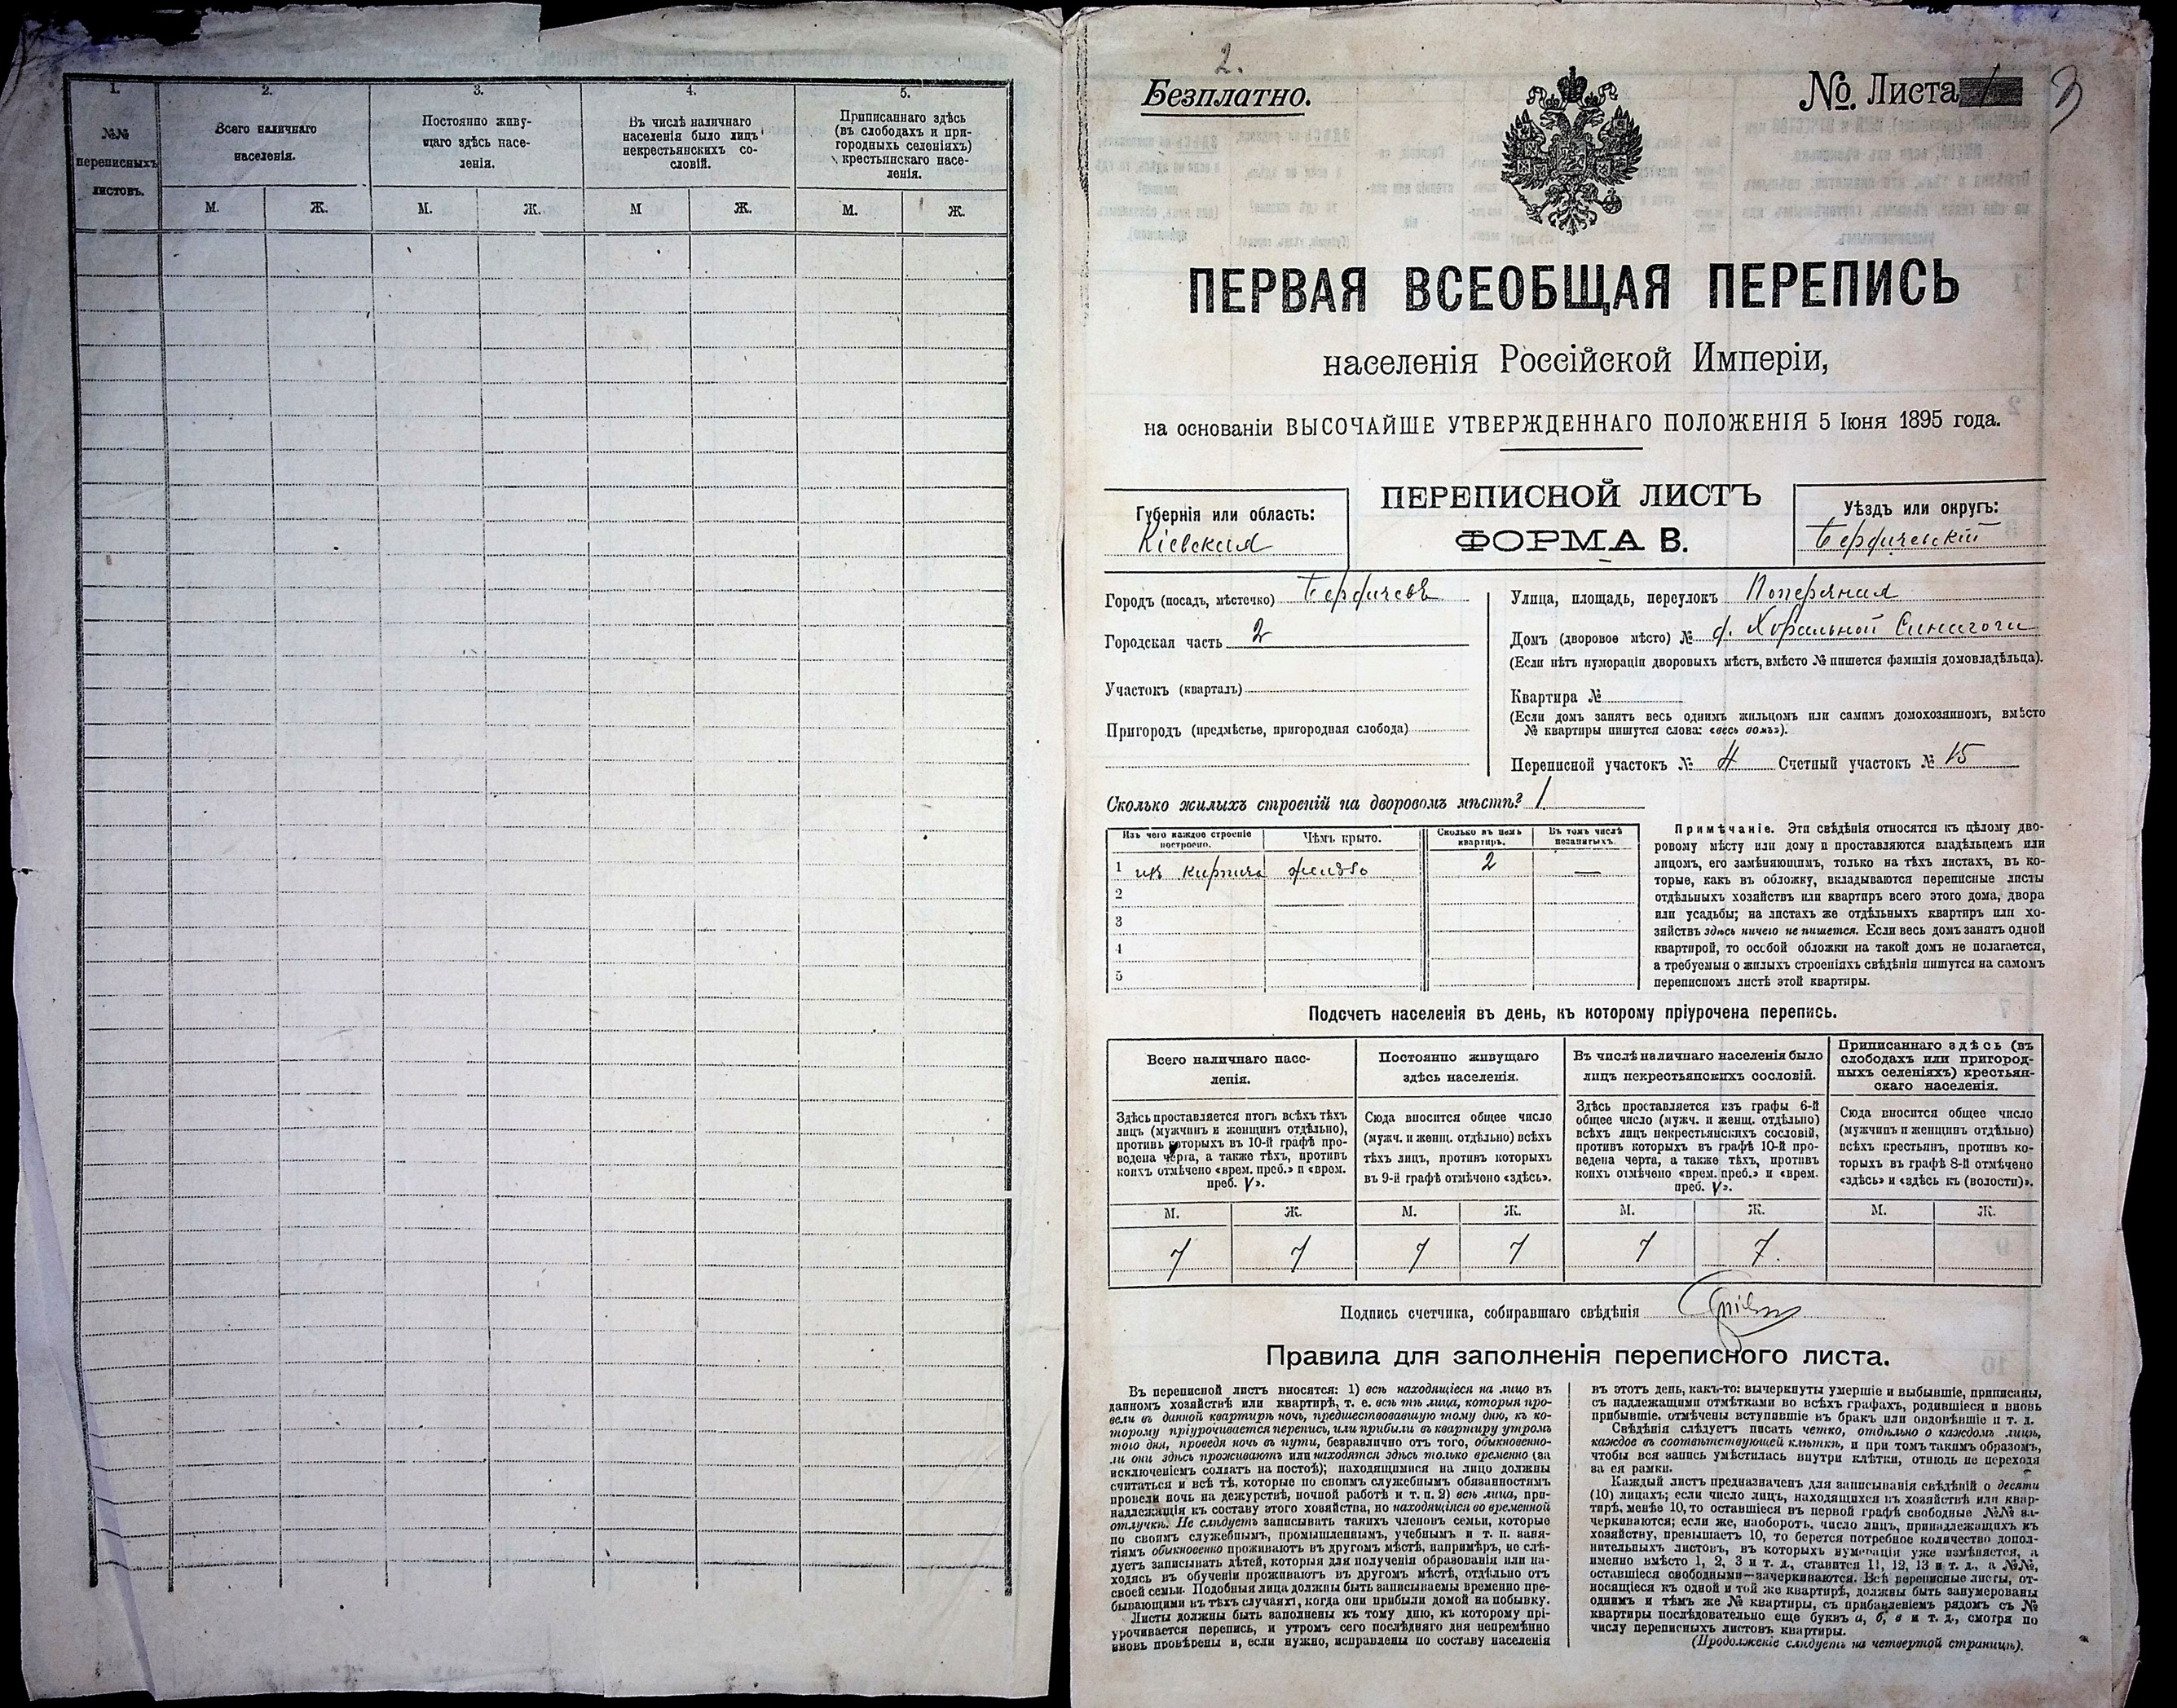 1.
№№
переписныхъ
листовъ.
2.
Всего наличнаго
населенія.
3.
Постоянно живу-
щаго здѣсь насе-
ленія.
4.
Въ числѣ наличнаго
населенія было лицъ
некрестьянскихъ со-
словій.
5.
Приписаннаго здѣсь
(въ слободахъ и при-
городныхъ селеніяхъ)
крестьянскаго насе-
ленія.
М. Ж. М. Ж. М Ж. М. Ж.
2.
Безплатно.
№. Листа 1
3
ПЕРВАЯ ВСЕОБЩАЯ ПЕРЕПИСЬ
населенія Россійской Имперіи,
на основаніи ВЫСОЧАЙШЕ УТВЕРЖДЕННАГО ПОЛОЖЕНІЯ 5 Іюня 1895 года.
Губернія или область:
Кіевская
ПЕРЕПИСНОЙ ЛИСТЪ
ФОРМА В.
Уѣздъ или округъ:
Бердичевскій
Городъ (посадъ, мѣстечко) Бердичевъ
Городская часть 2
Участокъ (кварталъ)
Пригородъ (предмѣстье, пригородная слобода)
Улица, площадь, переулокъ Поперечная
Домъ (дворовое мѣсто) № д. Хоральной Синагоги
(Если нѣтъ нумераціи дворовыхъ мѣстъ, вмѣсто № пишется фамилія домовладѣльца).
Квартира №
(Если домъ занятъ весь однимъ жильцомъ или самимъ домохозяиномъ, вмѣсто
№ квартиры пишутся слова: «весь домъ»).
Переписной участокъ № 4 Счетный участокъ № 15
Сколько жилыхъ строеній на дворовомъ мѣстѣ? 1
Изъ чего каждое строеніе
построено.
Чѣмъ крыто.
Сколько въ немъ
квартиръ.
Въ томъ числѣ
незанятыхъ.
1 изъ кирпича 2 —
2
3
4
5
Примѣчаніе. Эти свѣдѣнія относятся къ цѣлому дво-
ровому мѣсту или дому и проставляются владѣльцемъ или
лицомъ, его замѣняющимъ, только на тѣхъ листахъ, въ ко-
торые, какъ въ обложку, вкладываются переписные листы
отдѣльныхъ хозяйствъ или квартиръ всего этого дома, двора
или усадьбы; на листахъ же отдѣльныхъ квартиръ или хо-
зяйствъ здѣсь ничего не пишется. Если весь домъ занятъ одной
квартирой, то особой обложки на такой домъ не полагается,
а требуемыя о жилыхъ строеніяхъ свѣдѣнія пишутся на самомъ
переписномъ листѣ этой квартиры.
Подсчетъ населенія въ день, къ которому пріурочена перепись.
Всего наличнаго насе-
ленія.
Постоянно живущаго
здѣсь населенія.
Въ числѣ наличнаго населенія было
лицъ некрестьянскихъ сословій.
Приписаннаго здѣсь (въ
слободахъ или пригород-
ныхъ селеніяхъ) крестьян-
скаго населенія.
Здѣсь проставляется итогъ всѣхъ тѣхъ
лицъ (мужчинъ и женщинъ отдѣльно),
противъ которыхъ въ 10-й графѣ про-
ведена черта, а также тѣхъ, противъ
коихъ отмѣчено «врем. преб.» и «врем.
преб. V».
Сюда вносится общее число
(мужч. и женщ. отдѣльно) всѣхъ
тѣхъ лицъ, противъ которыхъ
въ 9-й графѣ отмѣчено «здѣсь».
Здѣсь проставляется изъ графы 6-й
общее число (мужч. и женщ. отдѣльно)
всѣхъ лицъ некрестьянскихъ сословій,
противъ которыхъ въ графѣ 10-й про-
ведена черта, а также тѣхъ, противъ
коихъ отмѣчено «врем. преб.» и «врем.
преб. V».
Сюда вносится общее число
(мужчинъ и женщинъ отдѣльно)
всѣхъ крестьянъ, противъ ко-
торыхъ въ графѣ 8-й отмѣчено
«здѣсь» и «здѣсь къ (волости)».
М. Ж. М. Ж. М. Ж. М. Ж.
7 7 7 7 7 7.
Подпись счетчика, собиравшаго свѣдѣнія
Правила для заполненія переписного листа.
Въ переписной листъ вносятся: 1) всѣ находящіеся на лицо въ
данномъ хозяйствѣ или квартирѣ, т. е. всѣ тѣ лица, которыя про-
вели въ данной квартирѣ ночь, предшествовавшую тому дню, къ ко-
торому пріурочивается перепись, или прибыли въ квартиру утромъ
того дня, проведя ночь въ пути, безразлично отъ того, обыкновенно-
ли они здѣсь проживаютъ или находятся здѣсь только временно (за
исключеніемъ солдатъ на постоѣ); находящимися на лицо должны
считаться и всѣ тѣ, которые по своимъ служебнымъ обязанностямъ
провели ночь на дежурствѣ, ночной работѣ и т. п. 2) всѣ лица, при-
надлежащія къ составу этого хозяйства, но находящіяся во временной
отлучкѣ. Не слѣдуетъ записывать такихъ членовъ семьи, которые
по своимъ служебнымъ, промышленнымъ, учебнымъ и т. п. заня-
тіямъ обыкновенно проживаютъ въ другомъ мѣстѣ, напримѣръ, не слѣ-
дуетъ записывать дѣтей, которыя для полученія образованія или на-
ходясь въ обученіи проживаютъ въ другомъ мѣстѣ, отдѣльно отъ
своей семьи. Подобныя лица должны быть записываемы временно пре-
бывающими въ тѣхъ случаяхъ, когда они прибыли домой на побывку.
Листы должны быть заполнены къ тому дню, къ которому прі-
урочивается перепись, и утромъ сего послѣдняго дня непремѣнно
вновь провѣрены и, если нужно, исправлены по составу населенія
въ этотъ день, какъ-то: вычеркнуты умершіе и выбывшіе, приписаны,
съ надлежащими отмѣтками во всѣхъ графахъ, родившіеся и вновь
прибывшіе, отмѣчены вступившіе въ бракъ или овдовѣвшіе и т. д.
Свѣдѣнія слѣдуетъ писать четко, отдѣльно о каждомъ лицѣ,
каждое въ соотвѣтствующей клѣткѣ, и при томъ такимъ образомъ,
чтобы вся запись умѣстилась внутри клѣтки, отнюдь не переходя
за ея рамки.
Каждый листъ предназначенъ для записыванія свѣдѣній о десяти
(10) лицахъ; если число лицъ, находящихся въ хозяйствѣ или квар-
тирѣ, менѣе 10, то оставшіеся въ первой графѣ свободные №№ за-
черкиваются; если же, наоборотъ, число лицъ, принадлежащихъ къ
хозяйству, превышаетъ 10, то берется потребное количество допол-
нительныхъ листовъ, въ которыхъ нумерація уже измѣняется, а
именно вмѣсто 1, 2, 3 и т. д., ставится 11, 12, 13 и т. д., а №№,
оставшіеся свободными—зачеркиваются. Всѣ переписные листы, от-
носящіеся къ одной и той же квартирѣ, должны быть занумерованы
однимъ и тѣмъ же № квартиры, съ прибавленіемъ рядомъ съ №
квартиры послѣдовательно еще буквъ а, б, в и т. д., смотря по
числу переписныхъ листовъ квартиры.
(Продолженіе слѣдуетъ на четвертой страницѣ).